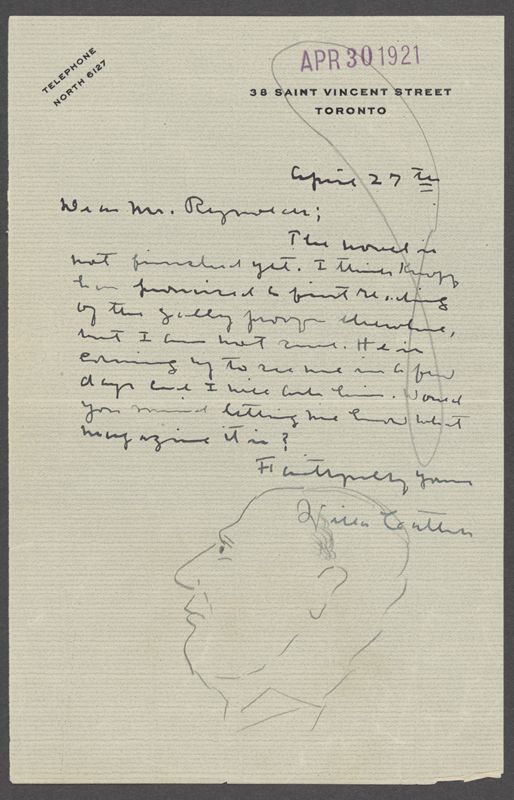 TELEPHONE
NORTH 6127
APR 30 1921
38 SAINT VINCENT STREET
TORONTO
April 27th
Dear Mr. Reynolds;
The novel is
not finished yet. I think Knopf
has promised a first reading
of the galley proofs elsewhere,
but I am not sure. He is
coming up to see me in a few
days and I will ask him. Would
you mind letting me know what
magazine it is?
Faithfully yours
Willa Cather